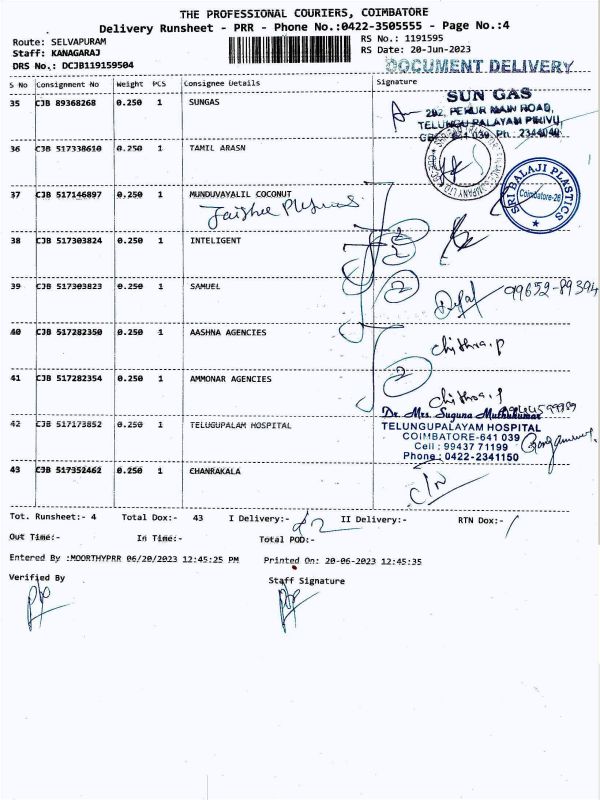 THE PROFESSIONAL COURIERS, COIMBATORE
Delivery Runsheet - PRR - Phone No.:0422-3505555 - Page No.:4
Route: SELVAPURAM
RS No.: 1191595
Staff: KANAGARAJ
RS Date: 20-Jun-2023
DRS No.: DCJB119159504
DOCUMENT DELIVERY
S No Consignment No Weight PCS Consignee Details Signature
35 CJB 89368268 0.250 1 SUNGAS
SUN GAS
292, PERUR MAIN ROAD,
TELUNGU PALAYAM PIRIVU,
641 039 Ph: 2344040
36 CJB 517338610 0.250 1 TAMIL ARASN
37 CJB 517146897 0.250 1 MUNDUVAYALIL COCONUT
SRI BALAJI PLASTICS
Coimbatore-26
38 CJB 517303824 0.250 1 INTELIGENT
2
2
39 CJB 517303823 0.250 1 SAMUEL
2
99652-89394
40 CJB 517282350 0.250 1 AASHNA AGENCIES
chithra.p
41 CJB 517282354 0.250 1 AMMONAR AGENCIES
2
chithra.p
Dr. Mrs. Suguna Muthukumar
42 CJB 517173852 0.250 1 TELUGUPALAM HOSPITAL
TELUNGUPALAYAM HOSPITAL
COIMBATORE-641 039
Cell : 99437 71199
Phone : 0422-2341150
43 CJB 517352462 0.250 1 CHANRAKALA
C/N
Tot. Runsheet:- 4 Total Dox:- 43 I Delivery:- II Delivery:- RTN Dox:-
Out Time:- In Time:- Total POD:-
Entered By :MOORTHYPRR 06/20/2023 12:45:25 PM Printed On: 20-06-2023 12:45:35
Verified By Staff Signature